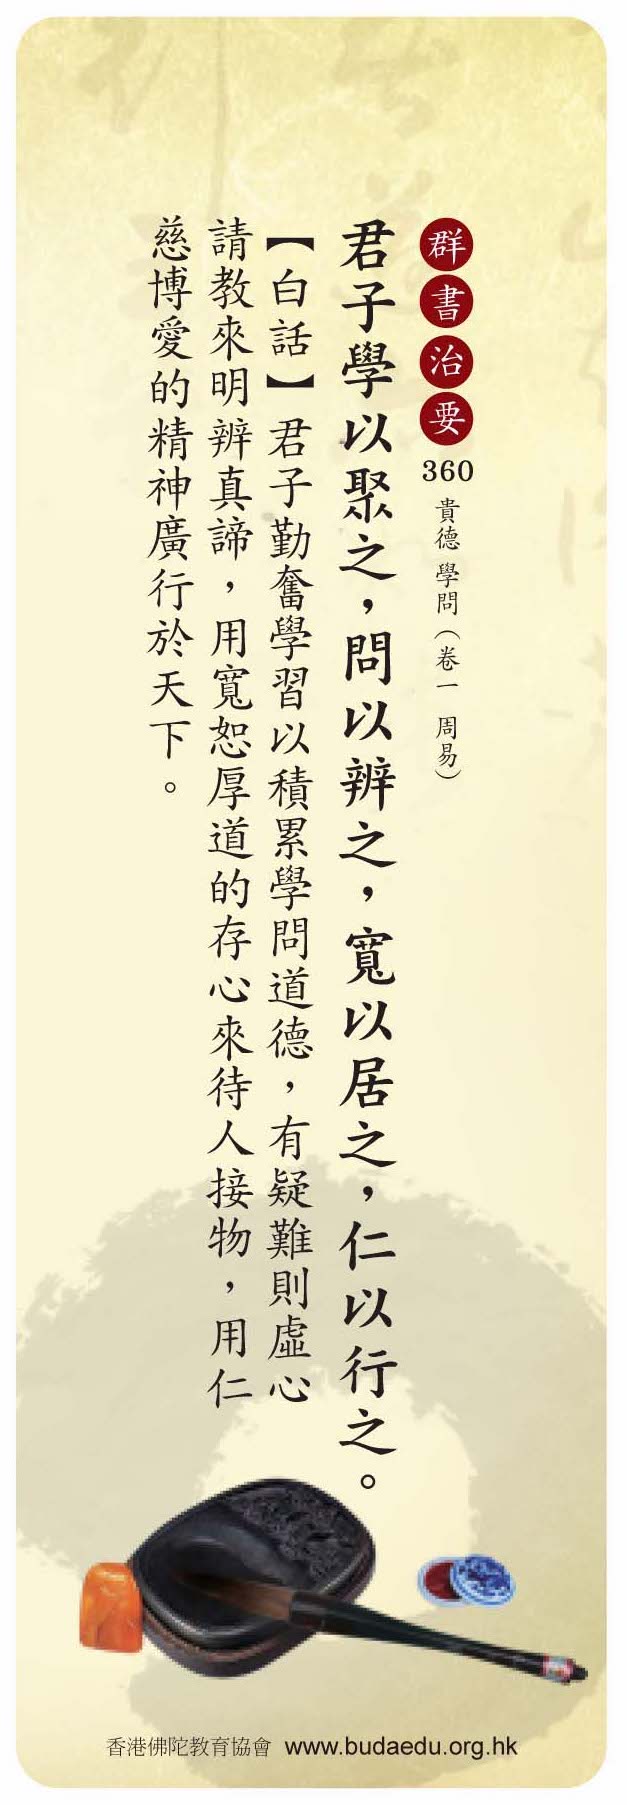 群書治要360 貴德 學問（卷一 周易）
君子學以聚之，問以辨之，寬以居之，仁以行之。
【白話】君子勤奮學習以積累學問道德，有疑難則虛心
請教來明辨真諦，用寬恕厚道的存心來待人接物，用仁
慈博愛的精神廣行於天下。
香港佛陀教育協會 www.budaedu.org.hk